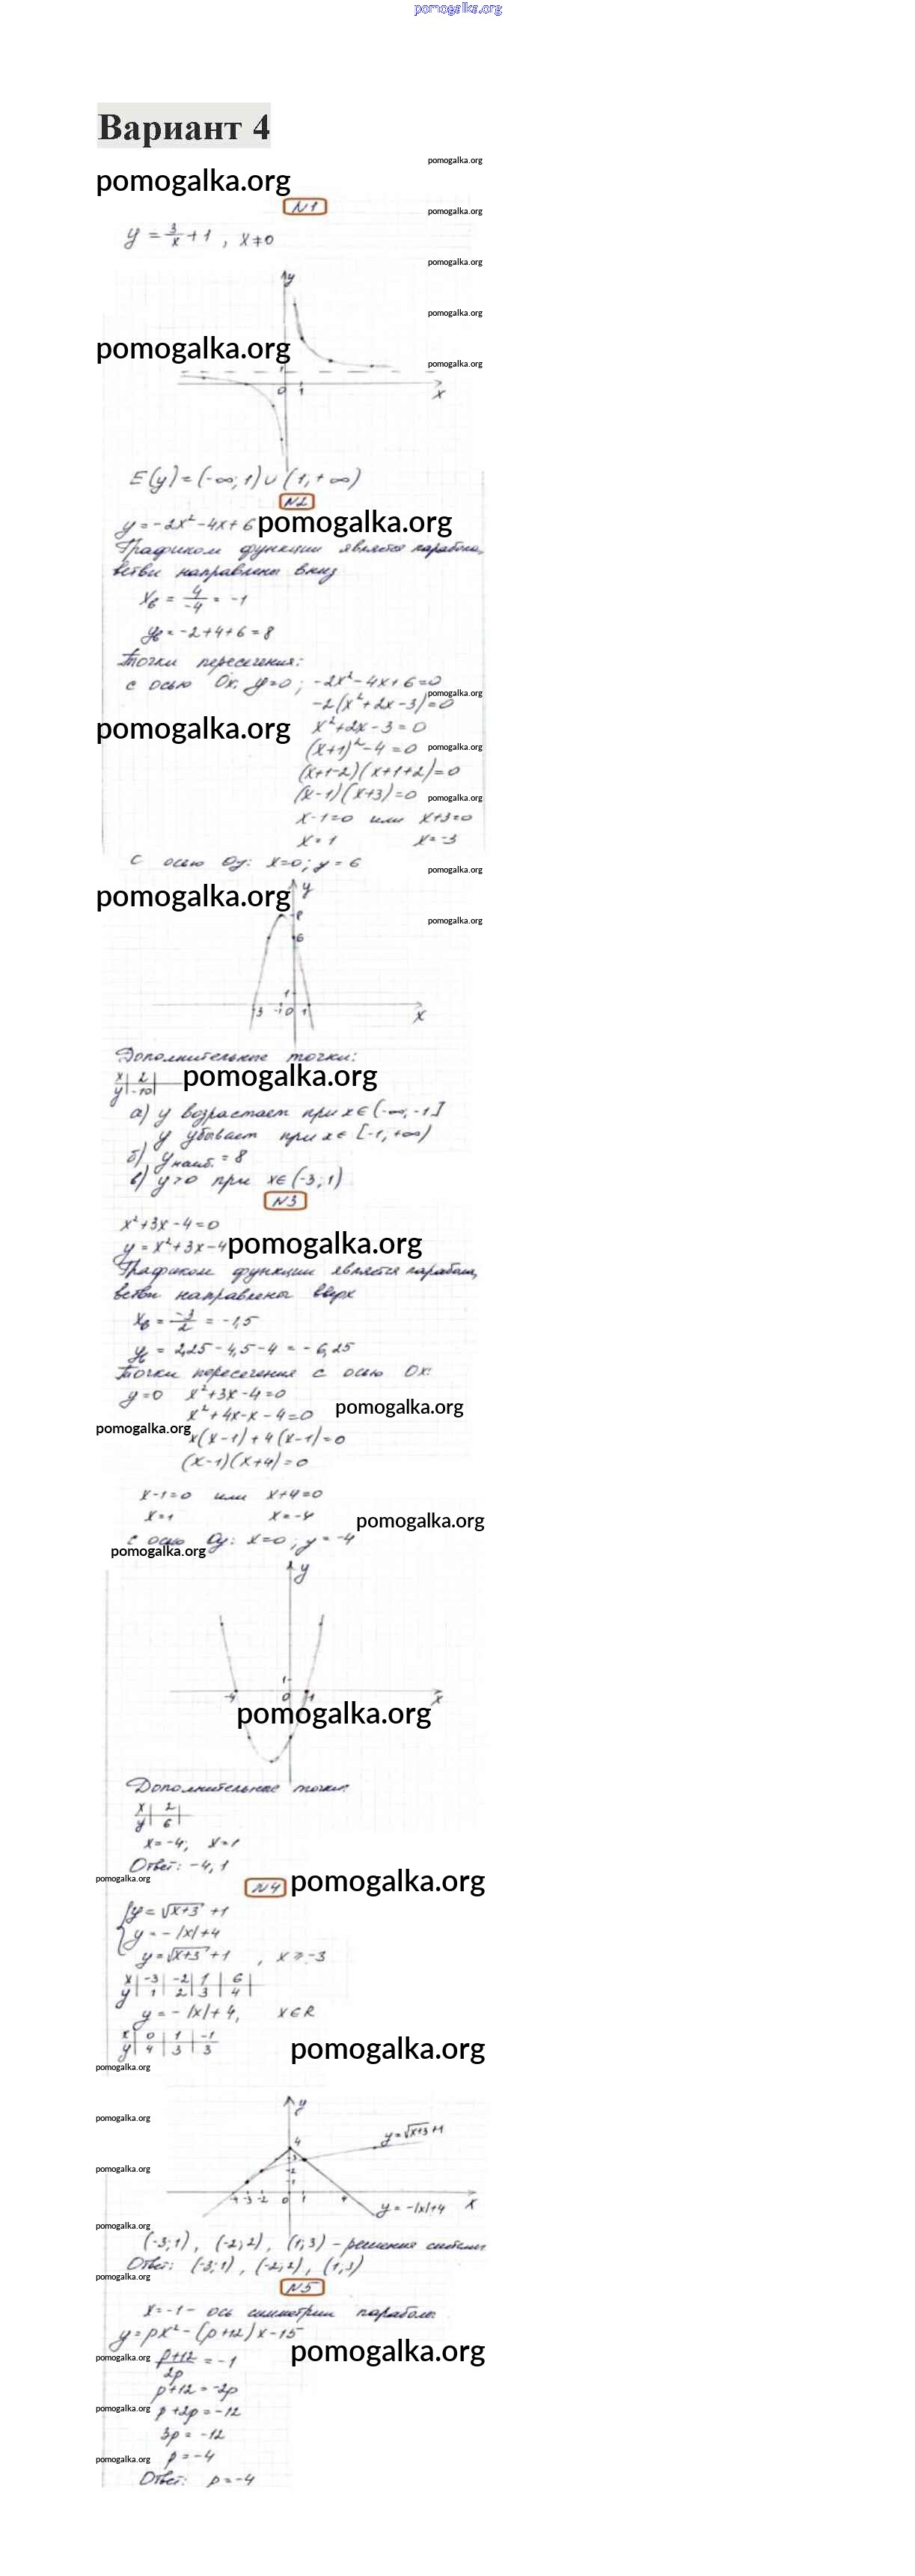 pomogalka.org
Вариант 4
pomogalka.org
pomogalka.org
N1
pomogalka.org
y = 3/x + 1 , x≠0
pomogalka.org
y
pomogalka.org
pomogalka.org
pomogalka.org
1
0 1
x
E(y) = (-∞; 1) ∪ (1; +∞)
N2
y = -2x² - 4x + 6 pomogalka.org
Графиком функции является парабола,
ветви направлены вниз
xв = 4/-4 = -1
yв = -2+4+6 = 8
Точки пересечения:
с осью Ox: y=0; -2x² - 4x + 6 = 0
pomogalka.org
-2(x² + 2x - 3) = 0
pomogalka.org
x² + 2x - 3 = 0
(x+1)² - 4 = 0 pomogalka.org
(x+1-2)(x+1+2) = 0
(x-1)(x+3) = 0 pomogalka.org
x-1=0 или x+3=0
x = 1 x = -3
с осью Oy: x=0; y = 6
pomogalka.org
pomogalka.org
y
8
pomogalka.org
6
1
-3 -1 0 1
x
Дополнительные точки:
x | 2 |
y | -10 |
pomogalka.org
а) y возрастает при x∈(-∞; -1]
y убывает при x∈[-1; +∞)
б) yнаиб. = 8
в) y>0 при x∈(-3; 1)
N3
x² + 3x - 4 = 0
y = x² + 3x - 4 pomogalka.org
Графиком функции является парабола,
ветви направлены вверх
xв = -3/2 = -1,5
yв = 2,25 - 4,5 - 4 = -6,25
Точки пересечения с осью Ox:
y=0 x² + 3x - 4 = 0
x² + 4x - x - 4 = 0 pomogalka.org
pomogalka.org
x(x-1) + 4(x-1) = 0
(x-1)(x+4) = 0
x-1=0 или x+4=0
x=1 x=-4
pomogalka.org
с осью Oy: x=0; y = -4
pomogalka.org
y
1
-4 0 1
x
pomogalka.org
Дополнительные точки:
x | 2 |
y | 6 |
x = -4; x = 1
Ответ: -4, 1
pomogalka.org
N4 pomogalka.org
{y = √x+3 + 1
y = -|x| + 4
y = √x+3 + 1 , x ≥ -3
x | -3 | -2 | 1 | 6 |
y | 1 | 2 | 3 | 4 |
y = -|x| + 4, x∈R
x | 0 | 1 | -1
y | 4 | 3 | 3
pomogalka.org
pomogalka.org
y
pomogalka.org
y = √x+3 + 1
4
3
pomogalka.org
2
1
-4 -3 -2 0 1 4
x
y = -|x| + 4
pomogalka.org
(-3; 1), (-2; 2), (1; 3) - решения системы
Ответ: (-3; 1), (-2; 2), (1; 3)
pomogalka.org
N5
x = -1 - ось симметрии параболы
y = px² - (p+12)x - 15
pomogalka.org
pomogalka.org
p+12/2p = -1
p+12 = -2p
pomogalka.org
p + 2p = -12
3p = -12
pomogalka.org
p = -4
Ответ: p = -4